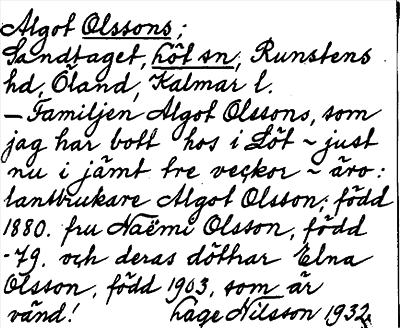 Algot Olssons;
Sandtaget, Löt sn, Runstens
hd, Öland, Kalmar l.
— Familjen Algot Olssons, som
jag har bott hos i Löt ~ just
nu i jämt tre veckor ~ äro:
lantbrukare Algot Olsson, född
1880. fru Naëmi Olsson, född
-79. och deras döttrar Elna
Olsson, född 1903, som är
vänd! Lage Nilsson 1932.